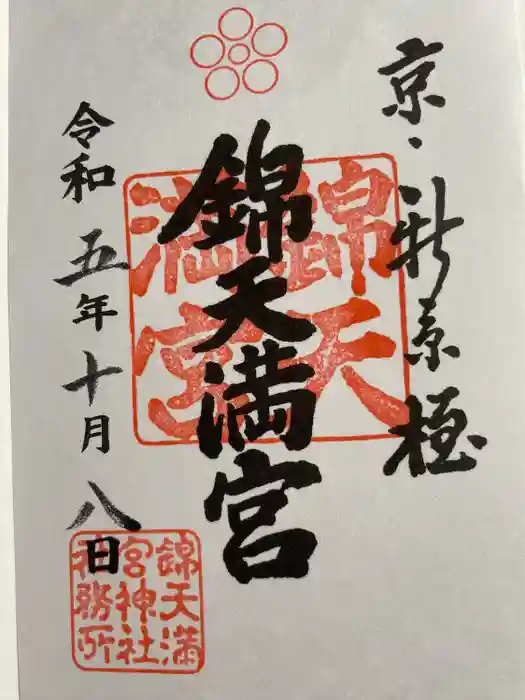 京・新京極
錦天満宮
令和五年十月八日
錦天
満宮
錦天満
宮神社
務所